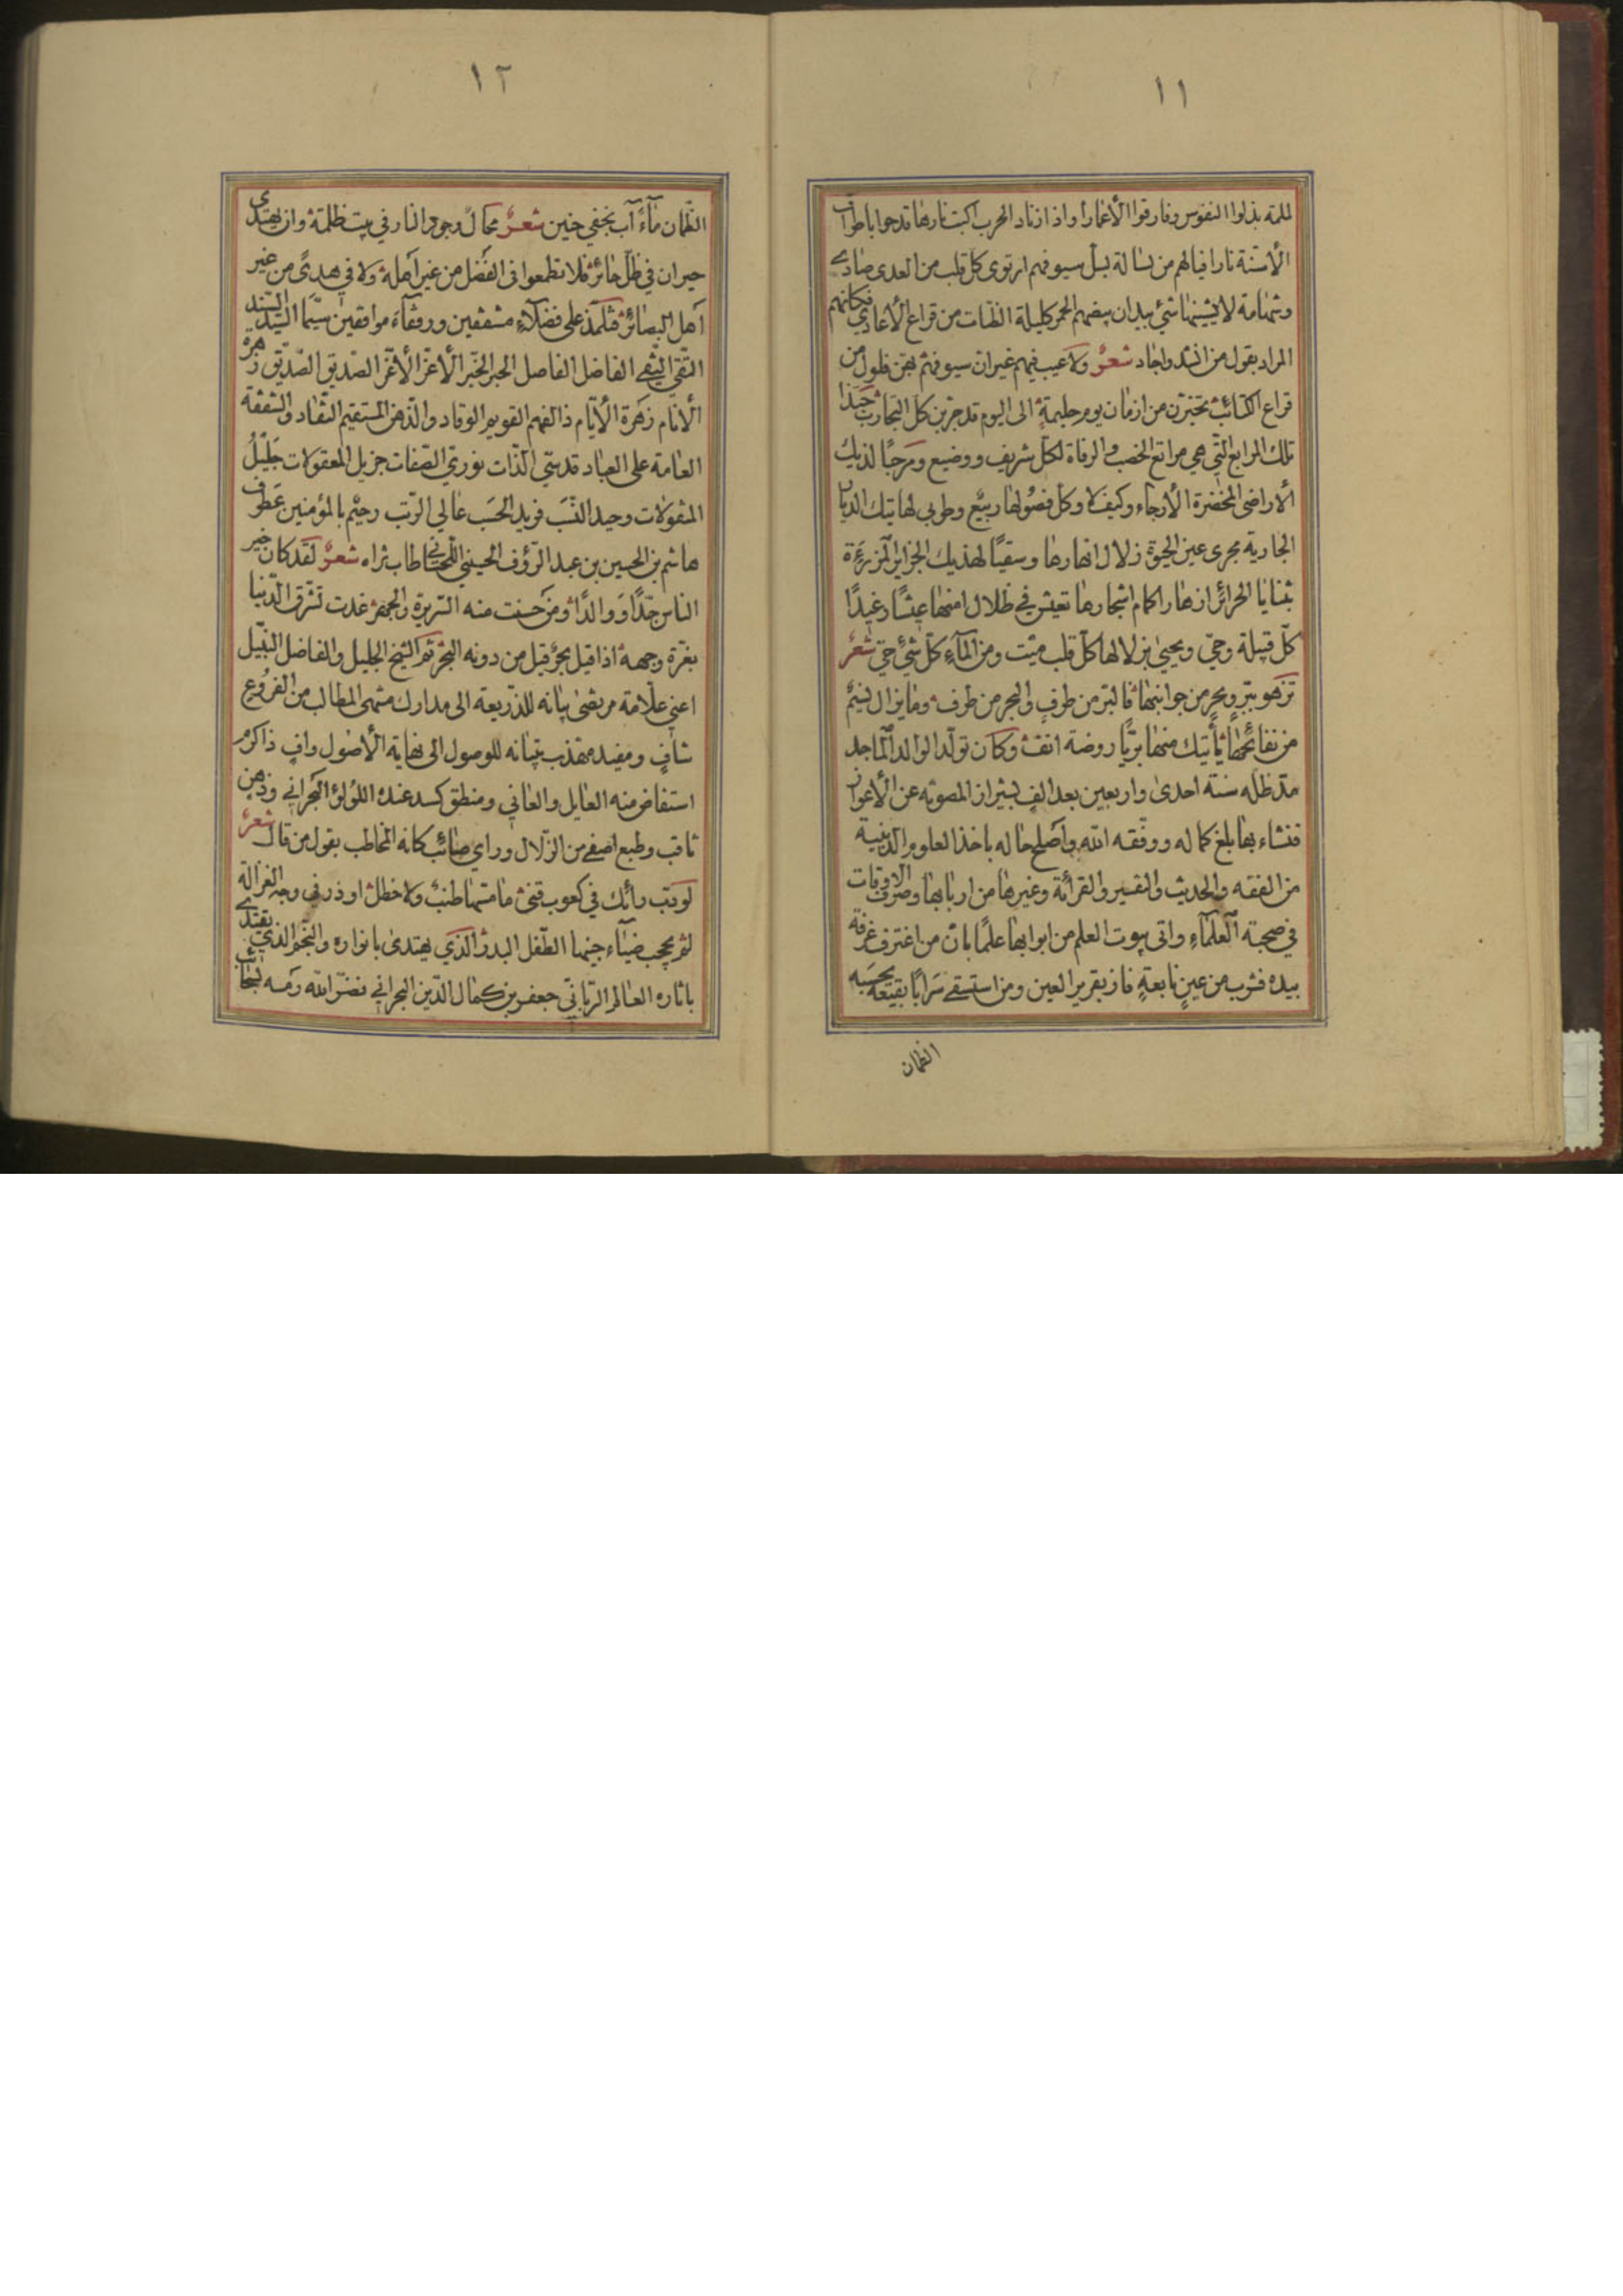 ١١
للمة بذلوا النفوس وفارقوا الأغمارا واذا زناد الحرب اكبت نارها قدحوا باطراف
الأسنة نارا فيالهم من بسالة بسل سيوفهم ارتوى كل قلب من العدى صادى
وشهامة لا يشينها شئ بيد ان بيضهم الحمر كليلة الظبات من قراع الأعادي فكانهم
المراد بقول من انشد واجاد شعر ولا عيب فيهم غير ان سيوفهم بهن فلول من
قراع الكتائب تخيرن من ازمان يوم حليمة الى اليوم قد جربن كل التجارب حبذا
تلك المرابع التي هي مراتع الخصب والرفاة لكل شريف ووضيع ومرحبًا لذيك
الأراضى المخضرة الأرجاء وكيف لا وكل فصولها ربيع وطوبى لهاتيك الديار
الجارية مجرى عين الحيوة زلال انهارها وسقيًا لهذيك الجزاير المزرءة
بثنايا الحرائر ازهار اكمام اشجارها تعيش في ظلال امنها عيشًا رغيدًا
كل قبيلة وحي ويحيى بزلالها كل قلب ميت ومن المآء كل شئ حي شعر
تزهو ببر وبحر من جوانبها فالبر من طرف والبحر من طرف وما يزال نسيم
من نفائحها يأتيك منها بريا روضة انف وكان تولد الوالد الماجد
مد ظله سنة احدى واربعين بعد الف بشيراز المصونه عن الأعواز
فنشاء بها بلغ كماله ووفقه الله واصلح حاله باخذ العلوم الدينية
من الفقه والحديث والتفسير والقرائة وغيرها من اربابها وصرف الاوقات
في صحبة العلمآء واتى بيوت العلم من ابوابها علمًا بان من اغترف غرفة
بيده فشرب من عين نابعة فاز بقرير العين ومن استسقى سرابًا بقيعة يحسبه
الظمان
١٢
الظمان مآءً آب بخفي حنين شعر محال وجود النار في بيت ظلمة وان يهتدى
حيران في ظل حائر فلا تطمعوا فى الفضل من غير اهله ولا في هدىً من غير
اهل البصائر فتلمذ على فضلآء مشفقين ورفقآء موافقين سيما السيد السند
التقي النقي الفاضل الفاصل الحبر الخبر الأعز الأغر الصديق الصديق زهرة
الأنام زهرة الأيام ذا الفهم القويم الوقاد والذهن المستقيم النقاد والشفقة
العامة على العباد قدسي الذات نوري الصفات جزيل المعقولات جليل
المنقولات وحيد النسب فريد الحسب عالي الرتب رحيم بالمؤمنين عطوف
هاشم بن الحسين بن عبد الرؤف الحسيني طاب ثراه شعر لقد كان خير
الناس جدًا ووالدًا ومن حسنت منه السريرة والجهر غدت تشرق الدنيا
بغرة وجهه اذا قيل بحر قيل من دونه البحر ثم الشيخ الجليل والفاضل النبيل
اعني علامة مرتضى بيانه للذريعة الى مدارك منتهى المطالب من الفروع
شافٍ ومفيد مهذب تبيانه للوصول الى نهاية الأصول وافٍ ذا كرم
استفاض منه العايل والعاني ومنطق كسد عنده اللؤلؤ البحراني وذهن
ثاقب وطبع اصفى من الزلال وراي صائب كانه المخاطب بقول من قال شعر
لو دب رائك في كعوب قنى ما مسها طنب ولا خطل او ذر في وجه الغزالة
لم يحجب ضيآء جبينها الطفل البدر الذي يهتدى بانواره والنجم الذي يقتدى
باثاره العالم الرباني جعفر بن كمال الدين البحراني نضر الله رمسه